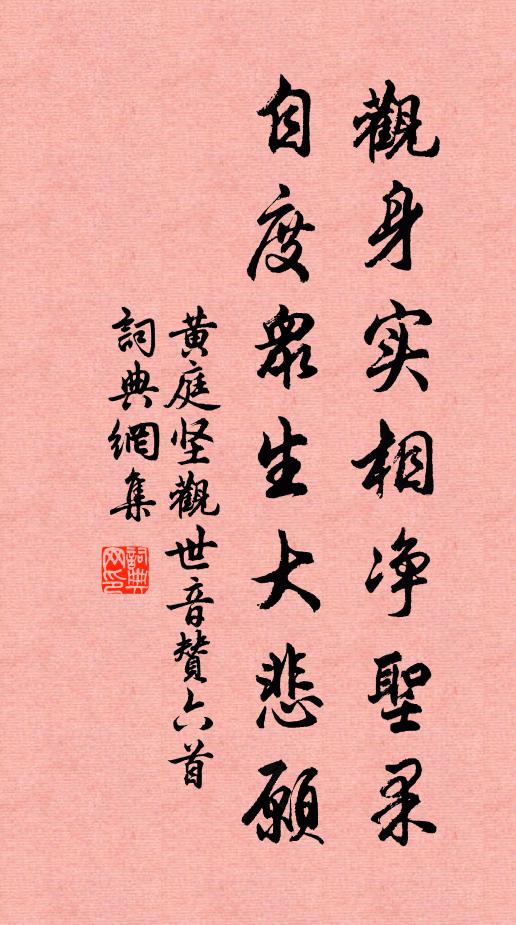 觀身实相净聖果
自度眾生大悲願
黃庭坚觀世音贊六首
詞典網集
詞典网印